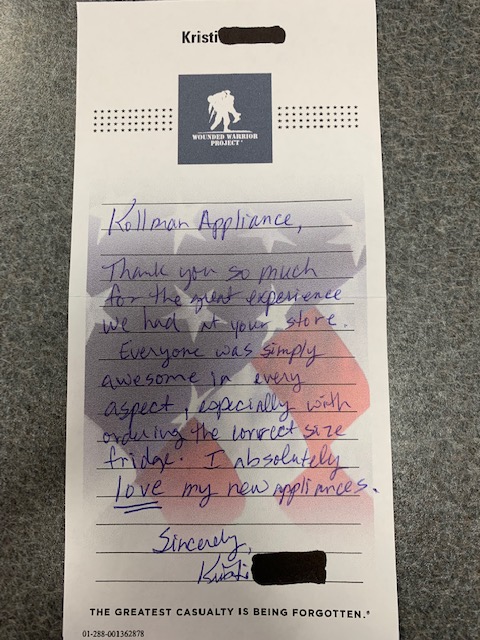 Kristi
WOUNDED WARRIOR
PROJECT®
Kollman Appliance,
Thank you so much
for the great experience
we had at your store.
Everyone was simply
awesome in every
aspect, especially with
ordering the correct size
fridge. I absolutely
love my new appliances.
Sincerely,
Kristi
THE GREATEST CASUALTY IS BEING FORGOTTEN.®
01-288-001362878